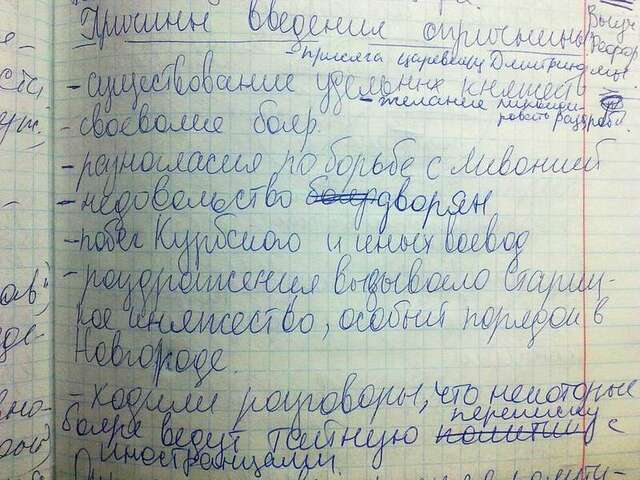 Причины введения опричнины
присяга царевичу Дмитрию
- существование удельных княжеств
- желание
- своеволие бояр.
- разногласия по борьбе с Ливонией
- недовольство дворян
- побег Курбского и иных воевод
- раздражения вызывало Стариц-
кое княжество, особый порядок в
Новгороде.
- ходили разговоры, что некоторые
переписку
бояре ведут тайную политику с
иностранцами.